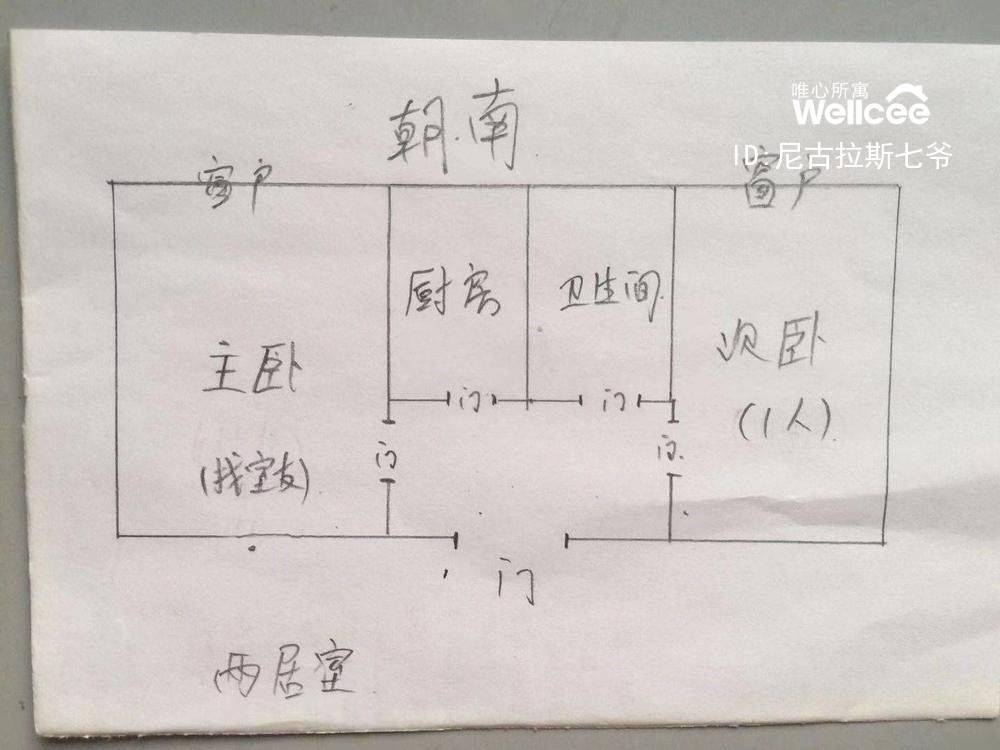 唯心所寓
Wellcee
ID:尼古拉斯七爷
朝南
窗户
窗户
厨房
卫生间
主卧
(找室友)
次卧
(1人)
门
门
门
门
门
两居室